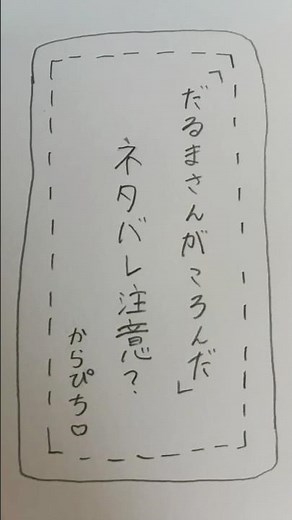 「だるまさんがころんだ」
ネタバレ注意?
からぴち♡